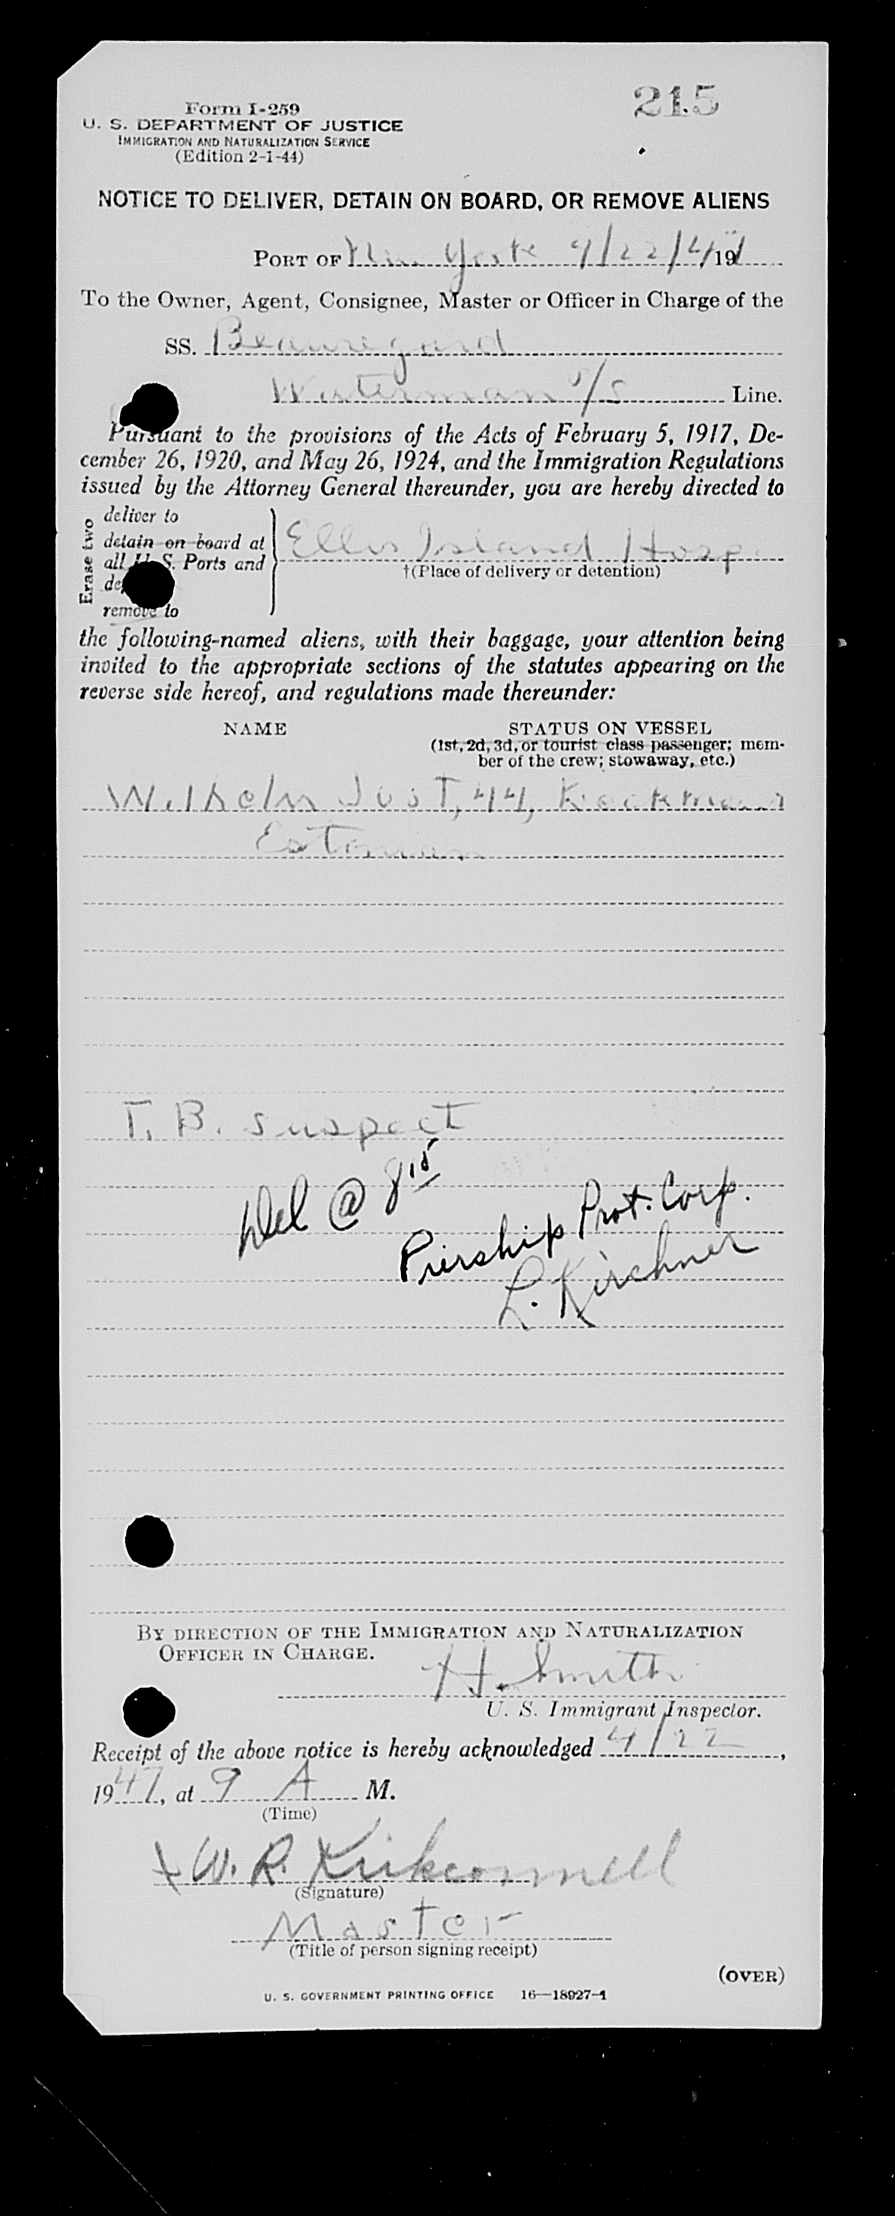 215
Form I-259
U. S. DEPARTMENT OF JUSTICE
IMMIGRATION AND NATURALIZATION SERVICE
(Edition 2-1-44)
NOTICE TO DELIVER, DETAIN ON BOARD, OR REMOVE ALIENS
PORT OF New York 4/22/47 19
To the Owner, Agent, Consignee, Master or Officer in Charge of the
SS. Beauregard
Waterman S/S Line.
Pursuant to the provisions of the Acts of February 5, 1917, De-
cember 26, 1920, and May 26, 1924, and the Immigration Regulations
issued by the Attorney General thereunder, you are hereby directed to
Erase two
deliver to
detain on board at
all U. S. Ports and
remove to
Ellis Island Hosp.
†(Place of delivery or detention)
the following-named aliens, with their baggage, your attention being
invited to the appropriate sections of the statutes appearing on the
reverse side hereof, and regulations made thereunder:
NAME STATUS ON VESSEL
(1st, 2d, 3d, or tourist class passenger; mem-
ber of the crew; stowaway, etc.)
Wilhelm Just, 44,
Estonian
T. B. suspect
Del @ 8 15
Piership Prot. Corp.
L. Kirchner
BY DIRECTION OF THE IMMIGRATION AND NATURALIZATION
OFFICER IN CHARGE.
H. Smith
U. S. Immigrant Inspector.
Receipt of the above notice is hereby acknowledged 4/22,
1947, at 9 A M.
(Time)
W. R. Kirkconnell
(Signature)
Master
(Title of person signing receipt)
(OVER)
U. S. GOVERNMENT PRINTING OFFICE 16—18927-1